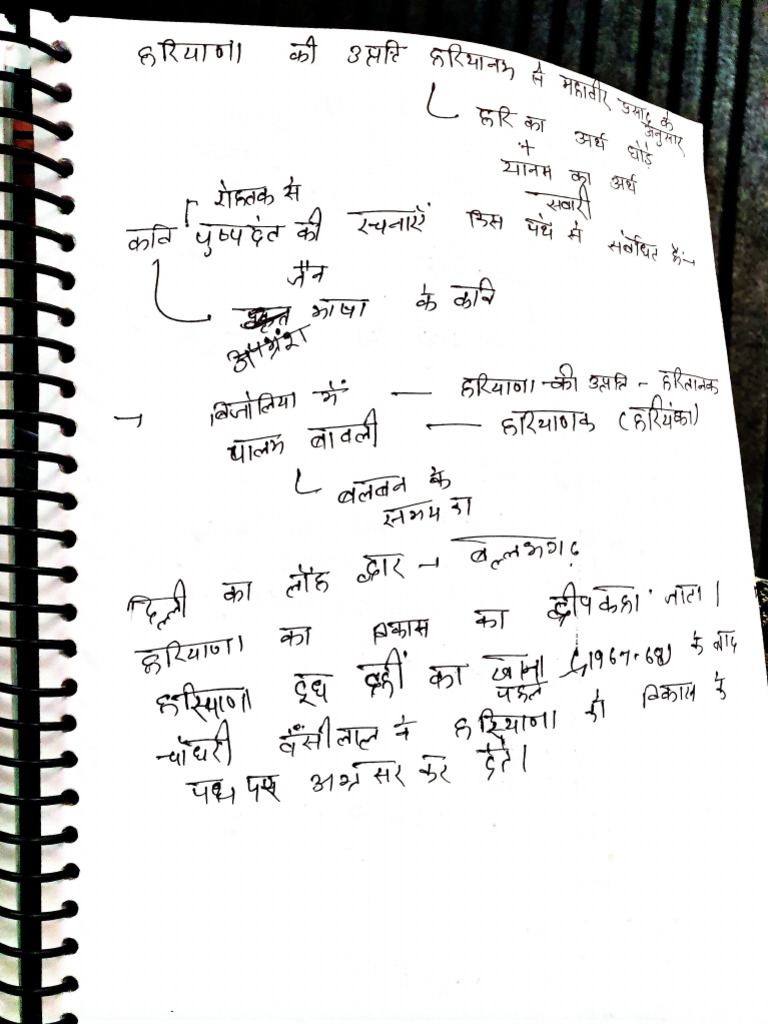 हरियाणा की उत्पत्ति हरियानम से महावीर प्रसाद के अनुसार
हरि का अर्थ घोड़े
+
यानम का अर्थ
सवारी
रोहतक से
कवि पुष्पदंत की रचनाएँ किस पंथ से संबंधित हैं→
जैन
भाषा के कवि
अपभ्रंश
→ बिजोलिया में — हरियाणा की उत्पत्ति - हरितानक
पालम बावली — हरियाणक (हरियंका)
बलबन के
समय का
दिल्ली का लौह द्वार → बल्लभगढ़
हरियाणा का विकास का द्वीप कहा जाता।
हरियाणा दूध दहीं का खाना (1967-68) के बाद
पहले
चौधरी बँसीलाल ने हरियाणा को विकास के
पथ पर अग्रसर कर देते।